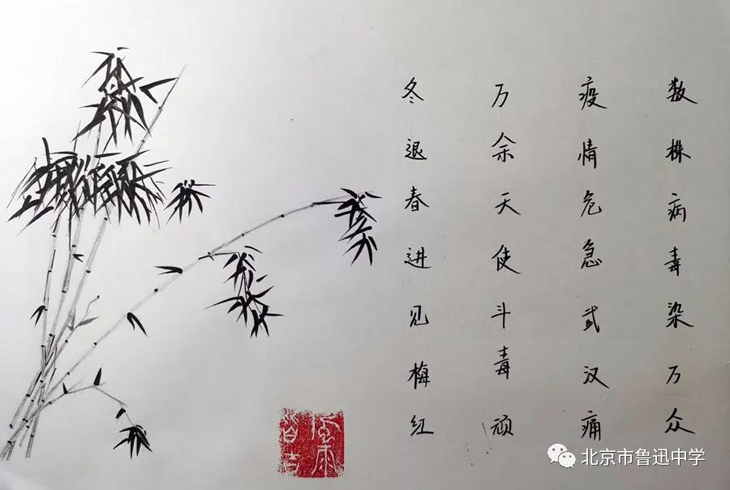 数株病毒染万众
疫情危急武汉痛
万余天使斗毒顽
冬退春进见梅红
北京市鲁迅中学